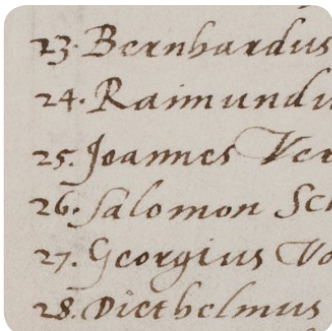 23. Bernhardus
24. Raimundu
25. Joannes Ver
26. Salomon Sch
27. Georgius Vo
28. Diethelmus